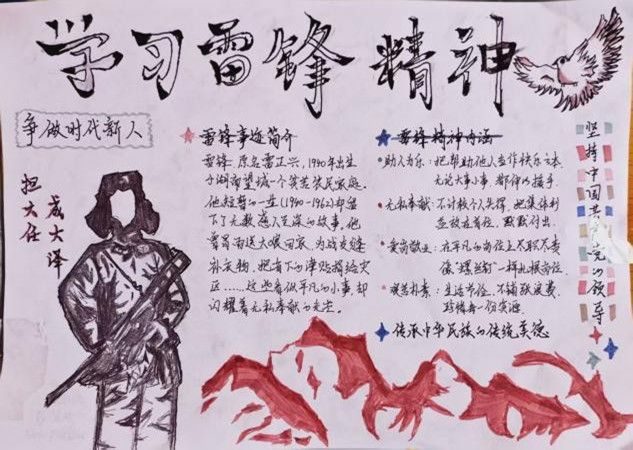 学习雷锋精神
争做时代新人
担大任
成大泽
雷锋事迹简介
雷锋,原名雷正兴,1940年出生
于湖南望城一个贫苦农民家庭。
他短暂的一生(1940-1962)却留
下了无数感人至深的故事,他
冒着雨送大嫂回家,为战友缝
补衣物,把省下的津贴捐给灾
区……这些看似平凡的小事,却
闪耀着无私奉献的光芒。
雷锋精神内涵
助人为乐:把帮助他人当作快乐之本
无论大事小事,都伸以援手.
无私奉献:不计较个人失得,把集体利
益放在首位,默默付出.
爱岗敬业:在平凡的岗位上尽职尽责
像"螺丝钉"一样扎根岗位.
艰苦朴素:生活节俭,不铺张浪费.
珍惜每一份资源.
传承中华民族的传统美德
坚持中国共产党的领导